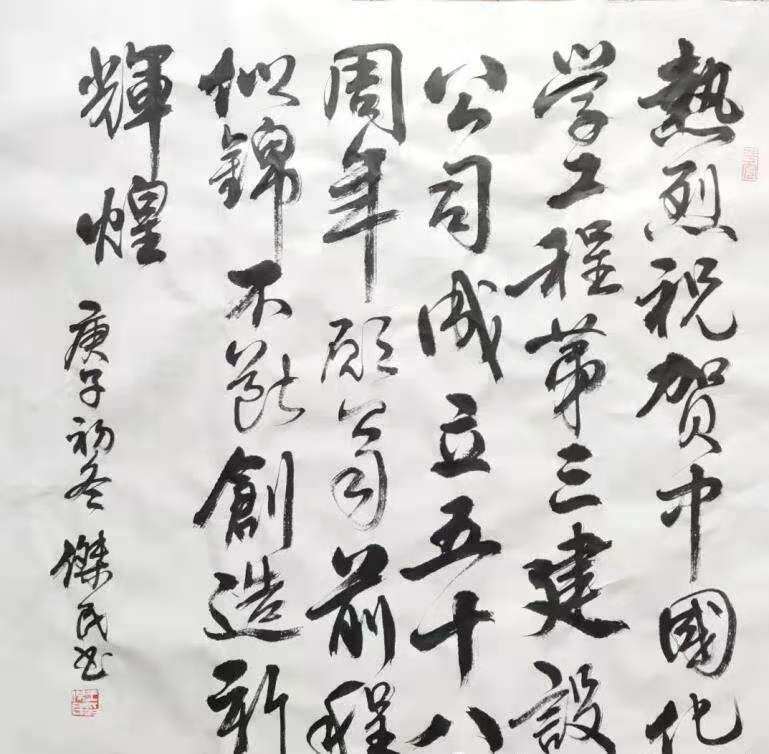 熱烈祝贺中國化
学工程第三建設
公司成立五十八
周年願公司前程
似錦不斷創造新
輝煌
庚子初冬 傑民书